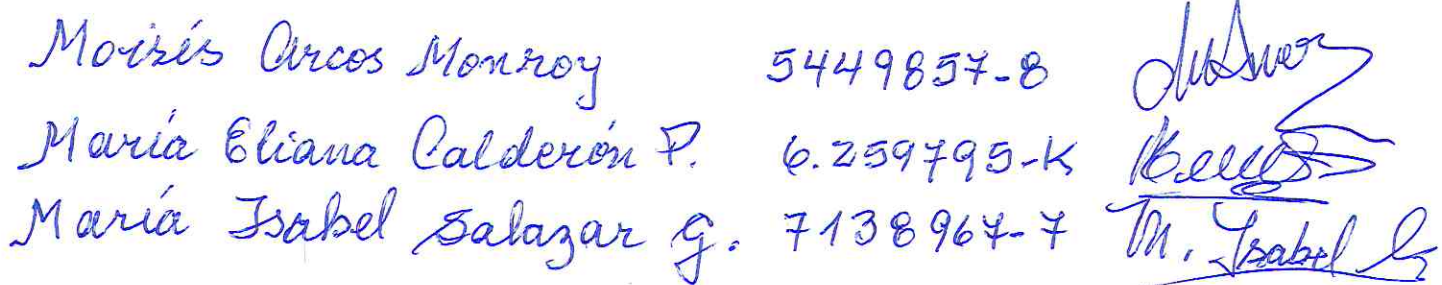 Moisés Arcos Monroy 5449857-8
María Eliana Calderón P. 6.259795-K
María Isabel Salazar G. 7138967-7 M. Isabel S